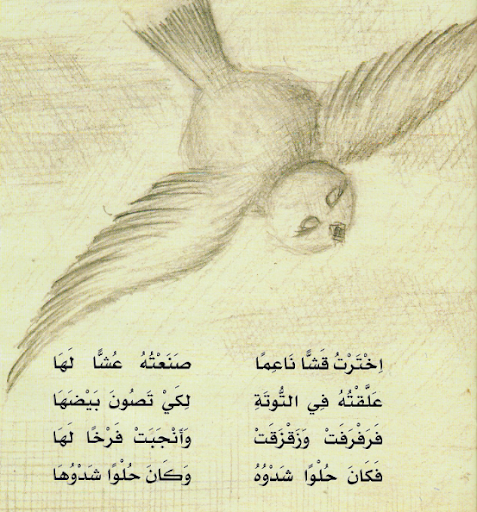 اِخْتَرْتُ قَشًّا نَاعِمًا صَنَعْتُهُ عُشًّا لَهَا
عَلَّقْتُهُ فِي التُّوتَةِ لِكَيْ تَصُونَ بَيْضَهَا
فَرَفْرَفَتْ وَزَقْزَقَتْ وَأَنْجَبَتْ فَرْخًا لَهَا
فَكَانَ حُلْوًا شَدْوُهُ وَكَانَ حُلْوًا شَدْوُهَا